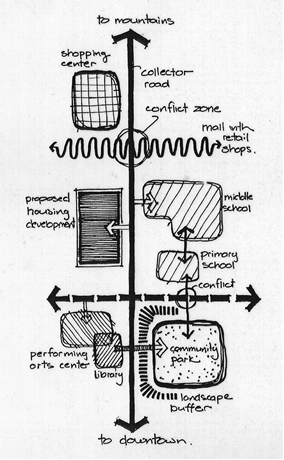 to mountains
shopping
center
collector
road
conflict zone
mall with
retail
shops.
proposed
housing
development
middle
school
primary
school
conflict
performing
arts center
library
community
park
landscape
buffer
to downtown.